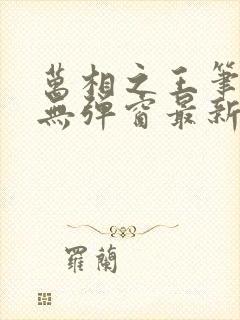 萬相之王筆
無彈窗最新
羅蘭